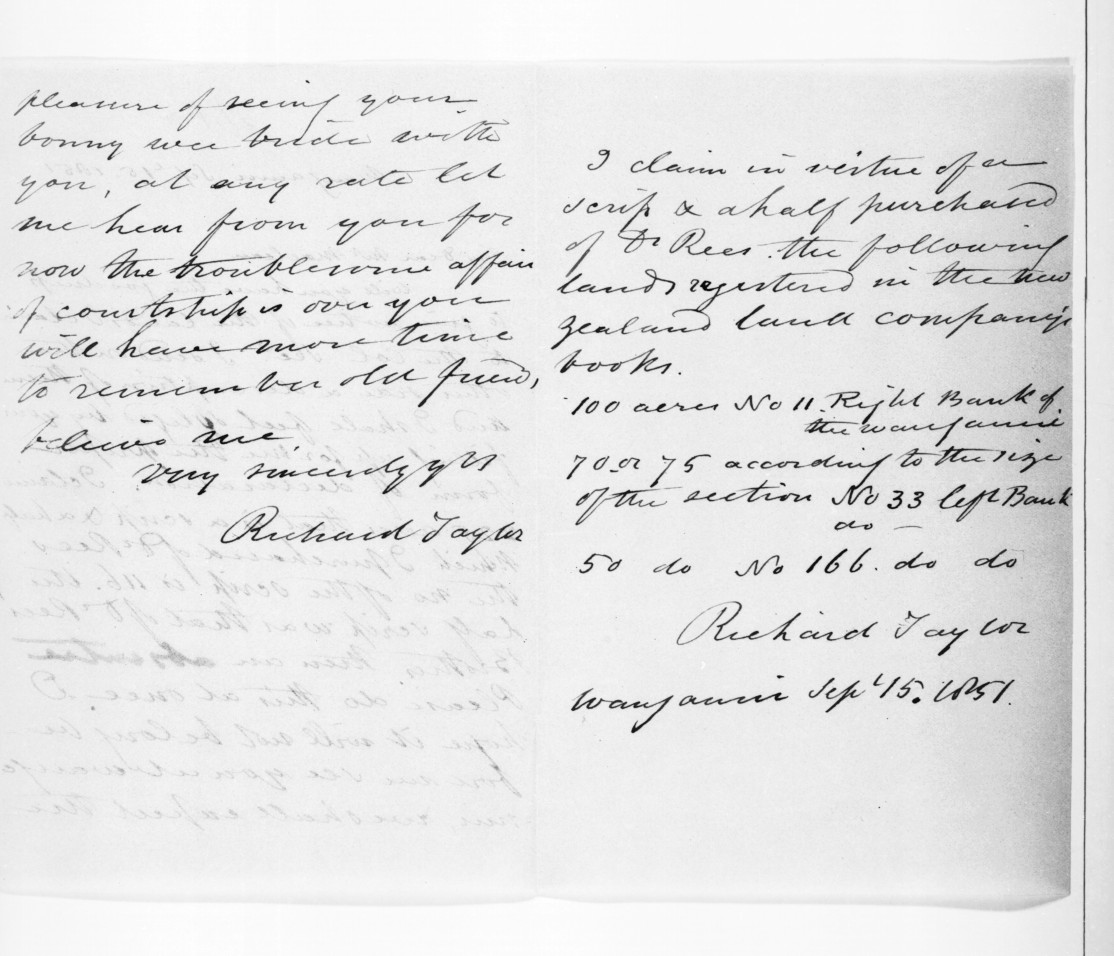 pleasure of seeing your
bonny wee bride with
you, at any rate let
me hear from you for
now the troublesome affair
of courtship is over you
will have more time
to remember old friends,
beleive me
very sincerely yrs
Richard Taylor
I claim in virtue of a
scrip & a half purchased
of Dr Rees. the following
lands registered in the new
zealand land company's
books.
100 acres No 11. Right Bank of
the wanganui
70 or 75 according to the size
of the section No 33 left Bank
do —
50 do No 166. do do
Richard Taylor
wanganui Sept 15. 1851.